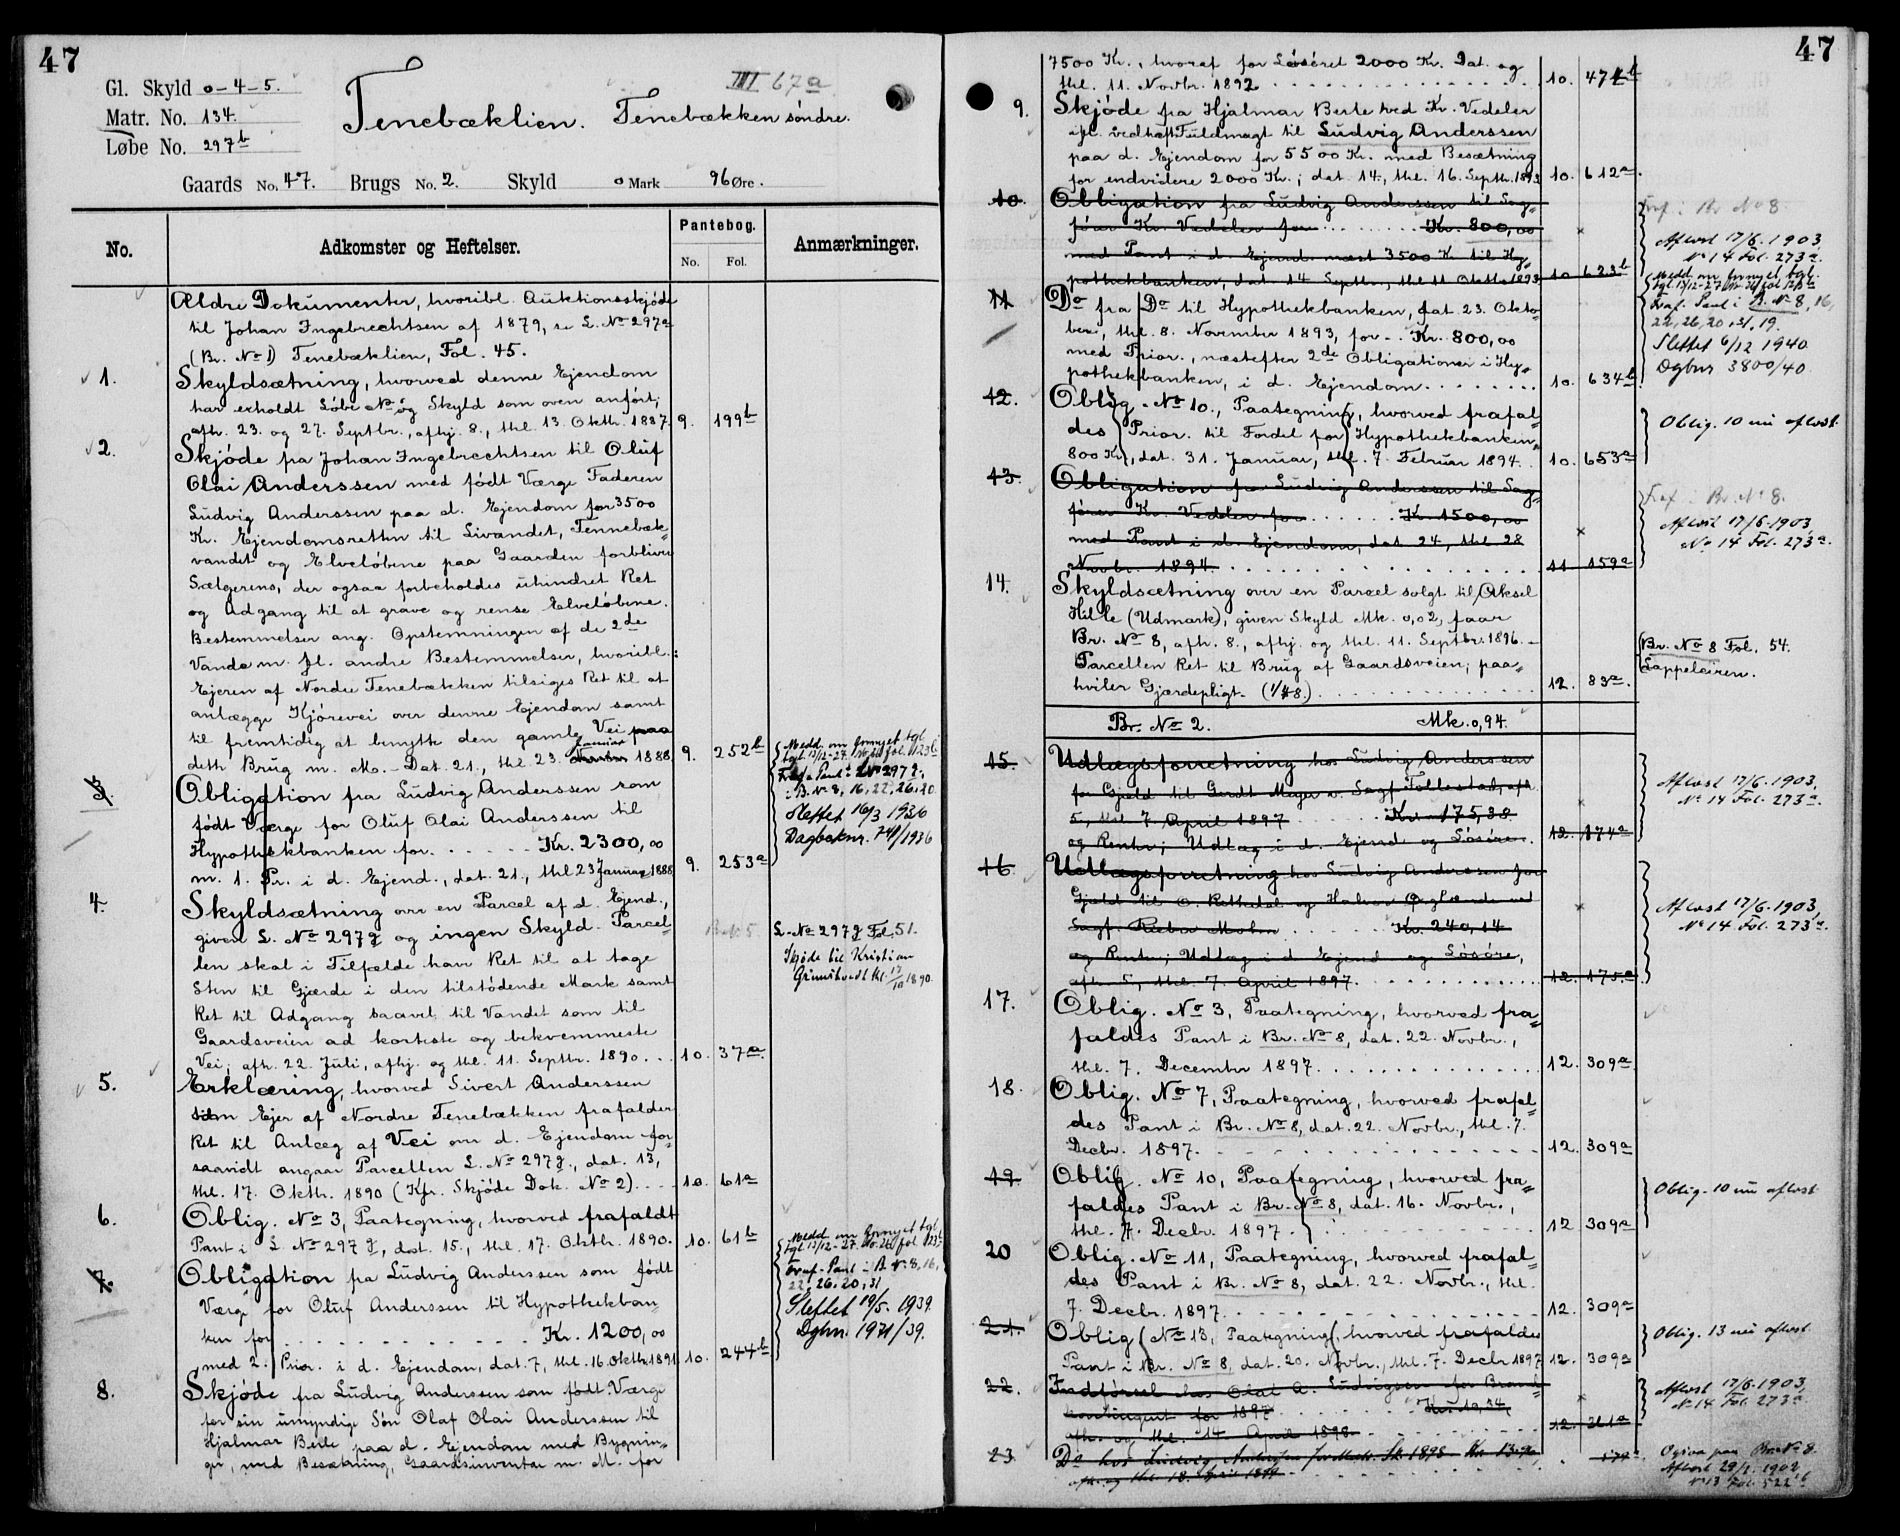 47
Gl. Skyld 0-4-5.
Matr. No. 134.
Løbe No. 297b
Tenebæklien. Tenebækken söndre.
III 67a
Gaards No. 47. Brugs No. 2. Skyld 0 Mark 96 Øre.
No. Adkomster og Heftelser. Pantebog. No. Fol. Anmærkninger.
Ældre Dokumenter, hvoribl. Auktionsskjöde
til Johan Ingebrechtsen af 1879, se L. No 297a
(Br. No 1) Tenebæklien, Fol. 45.
1. Skyldsætning, hvorved denne Ejendom
har erholdt Löbe No og Skyld som oven anfört;
afh. 23. og 27. Septbr., afhj. 8., thl. 13. Oktbr. 1887. 9. 199b
2. Skjöde fra Johan Ingebrechtsen til Oluf
Olai Anderssen med födt Værge Faderen
Ludvig Anderssen paa d. Ejendom for 3500
Kr. Ejendomsretten til Livandet, Tennebæk-
vandet og Elvelöbene paa Gaarden forbliver
Sælgerens, der ogsaa forbeholdes uhindret Ret
og Adgang til at grave og rense Elvelöbene.
Bestemmelser ang. Opstemningen af de 2de
Vande m. fl. andre Bestemmelser, hvoribl.:
Ejeren af Nordre Tenebækken tilsiges Ret til at
anlægge Kjörevei over denne Ejendom samt
til fremtidig at benytte den gamle Vei paa
deth Brug m. M. Dat. 21., thl. 23. Januar 1888. 9. 252b
3. Obligation fra Ludvig Anderssen som
födt Værge for Oluf Olai Anderssen til
Hypothekbanken for . . . . . Kr. 2300,00
m. 1. Pr. i d. Ejend., dat. 21., thl. 23 Januar 1888. 9. 253a
Medd. om fornyet tgl.
tgl. 13/12-27. No 26 fol. 123b
Fraf. Pant i L No 297g.
i B. No 8, 16, 22, 26, 20
Slettet 16/3 1936
Dagboknr. 741/1936
4. Skyldsætning over en Parcel af d. Ejend.,
given L. No 297g og ingen Skyld. Parcel-
len skal i Tilfælde have Ret til at tage
Sten til Gjærde i den tilstödende Mark samt
Ret til Adgang saavel til Vandet som til
Gaardsveien ad korteste og bekvemmeste
Vei; afh. 22. Juli, afhj. og thl. 11. Septbr. 1890. . . 10. 37a
Br No 5
L. No 297g Fol. 51.
Skjöde til Kristian
17/10 1890.
5. Erklæring, hvorved Sivert Anderssen
som Ejer af Nordre Tenebækken frafalder
Ret til Anlæg af Vei over d. Ejendom for-
saavidt angaar Parcellen L. No 297g., dat. 13,
thl. 17. Oktbr. 1890 (Kfr. Skjöde Dok. No 2). . . . 10. 61a
6. Oblig. No 3, Paategning, hvorved frafaldt
Pant i L. No 297g, dat. 15., thl. 17. Oktbr. 1890. 10. 61b
7. Obligation fra Ludvig Anderssen som födt
Værge for Oluf Anderssen til Hypothekban-
ken for . . . . . Kr. 1200,00
med 2. Prior. i d. Ejendom, dat. 7, thl. 16. Oktbr. 1891 10. 244b
Medd. om fornyet tgl.
tgl. 13/12-27. No. 26 fol. 123b
Fraf. Pant i B No 8, 16,
22, 26, 20, 31
Slettet 19/5. 1939.
Dgbnr. 1971/39.
8. Skjöde fra Ludvig Anderssen som födt Værge
for sin umyndige Sön Olaf Olai Anderssen til
Hjalmar Berle paa d. Ejendom med Bygnin-
ger, med Besætning, Gaardsinventar m. M. for
47
7500 Kr., hvoraf for Lösöret 2000 Kr. Dat. og
thl. 11. Novbr. 1892 . . . . . 10. 471b
9. Skjöde fra Hjalmar Berle ved Kr. Vedeler
ifl. vedhæft. Fuldmagt til Ludvig Anderssen
paa d. Ejendom for 5500 Kr. med Besætning
for endvidere 2000 Kr.; dat. 14., thl. 16. Septbr. 1893 10. 612a
10. Obligation fra Ludvig Anderssen til Sag-
förer Kr. Vedeler for . . . . . Kr. 800,00
med Pant i d. Ejend. næst 3500 Kr. til Hy-
pothekbanken, dat. 14 Septbr., thl. 11 Oktbr. 1893 10. 623b
Fraf. i Br No 8.
Aflæst 17/6. 1903,
No 14 Fol. 273a.
11. Do fra Do til Hypothekbanken, dat. 23. Okto-
ber, thl. 8. November 1893, for . . Kr. 800,00
med Prior., næstefter 2de Obligationer i Hy-
pothekbanken, i d. Ejendom . . . . . 10. 634b
Medd. om fornyet tgl.
tgl. 13/12-27. No 26 fol 123b
Fraf. Pant i B. No 8, 16,
22, 26, 20, 31, 19.
Slettet 6/12 1940.
Dgbnr 3800/40.
12. Oblig. No 10., Paategning, hvorved frafal-
des Prior. til Fordel for Hypothekbanken
800 Kr., dat. 31. Januar, thl. 7. Februar 1894. . 10. 653a
Oblig. 10 nu aflæst.
13. Obligation fra Ludvig Anderssen til Sag-
förer Kr. Vedeler for . . . . . Kr. 1500,00
med Pant i d. Ejendom, dat. 24, thl. 28
Novbr. 1894. . . . . . 11. 159a
Fraf i Br. No 8.
Aflæst 17/6. 1903,
No 14 Fol. 273a.
14. Skyldsætning over en Parcel solgt til Aksel
Hille (Udmark), given Skyld Mk. 0,02, faar
Br. No 8, afh. 8., afhj. og thl. 11. Septbr. 1896. –
Parcellen Ret til Brug af Gaardsveien; paa-
hviler Gjærdepligt. (1/48). . . . . . 12. 83a.
Br. No 8 Fol. 54.
Lappeleiren.
Br. No 2. Mk. 0,94.
15. Udlægsforretning hos Ludvig Anderssen
for Gjæld til Gerdt Meyer v. Sagf. Follestad, afh.
5, thl 7 April 1897 . . . . Kr. 175,38
og Renter; Udlæg i d. Ejend og Lösöre. 12. 174a
Aflæst 17/6. 1903,
No 14 Fol. 273a.
16. Udlægsforretning hos Ludvig Anderssen for
Gjæld til O. Rettedal og Halvor ved
Sagf. . . . . Kr. 240,14
og Renter; Udlæg i d. Ejend og Lösöre,
afh. 5, thl. 7. April 1897. . . . . . 12. 175a
Aflæst 17/6. 1903,
No 14 Fol. 273a.
17. Oblig. No 3, Paategning, hvorved fra-
faldes Pant i Br. No 8, dat. 22. Novbr.,
thl. 7. December 1897. . . . . . 12. 309a
18. Oblig. No 7, Paategning, hvorved frafal-
des Pant i Br. No 8, dat. 22. Novbr., thl. 7.
Decbr. 1897. . . . . . 12. 309a
19. Oblig. No 10, Paategning, hvorved fra-
faldes Pant i Br. No 8, dat. 16. Novbr.,
thl. 7. Decbr. 1897. . . . . . 12 309a
Oblig. 10 nu aflæst.
20 Oblig. No 11, Paategning, hvorved frafal-
des Pant i Br. No 8, dat. 22. Novbr., thl.
7. Decbr. 1897. . . . . . 12. 309a
21. Oblig No 13, Paategning, hvorved frafaldes
Pant i Br. No 8, dat. 20. Novbr., thl. 7. Decbr 1897 12. 309a
Oblig. 13 nu aflæst.
22. Indförsel hos Olai A. Ludvigsen for Brand-
kontingent for 1897 . . . . Kr. 10,34,
afh. og thl. 14. April 1898. . . . . . 12. 361a
Aflæst 17/6. 1903,
No 14 Fol. 273a.
23 Do hos Ludvig Anderssen Sk. 1898 Kr.
afh. og thl. 18. April 1899
Ogsaa paa Br. No 8.
Aflæst 29/1. 1902
No 13 Fol. 522b